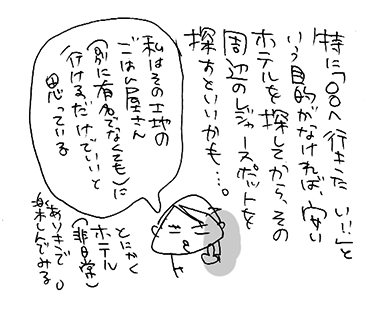 特に「○○へ行きたい!!」と
いう目的がなければ、安い
ホテルを探してから、その
周辺のレジャースポットを
探すといいかも…。
私はその土地の
ごはん屋さん
(別に有名でなくても)に
行けるだけでいいと
思っている
とにかく
ホテル
(非日常)
ありきで
楽しんでみる。